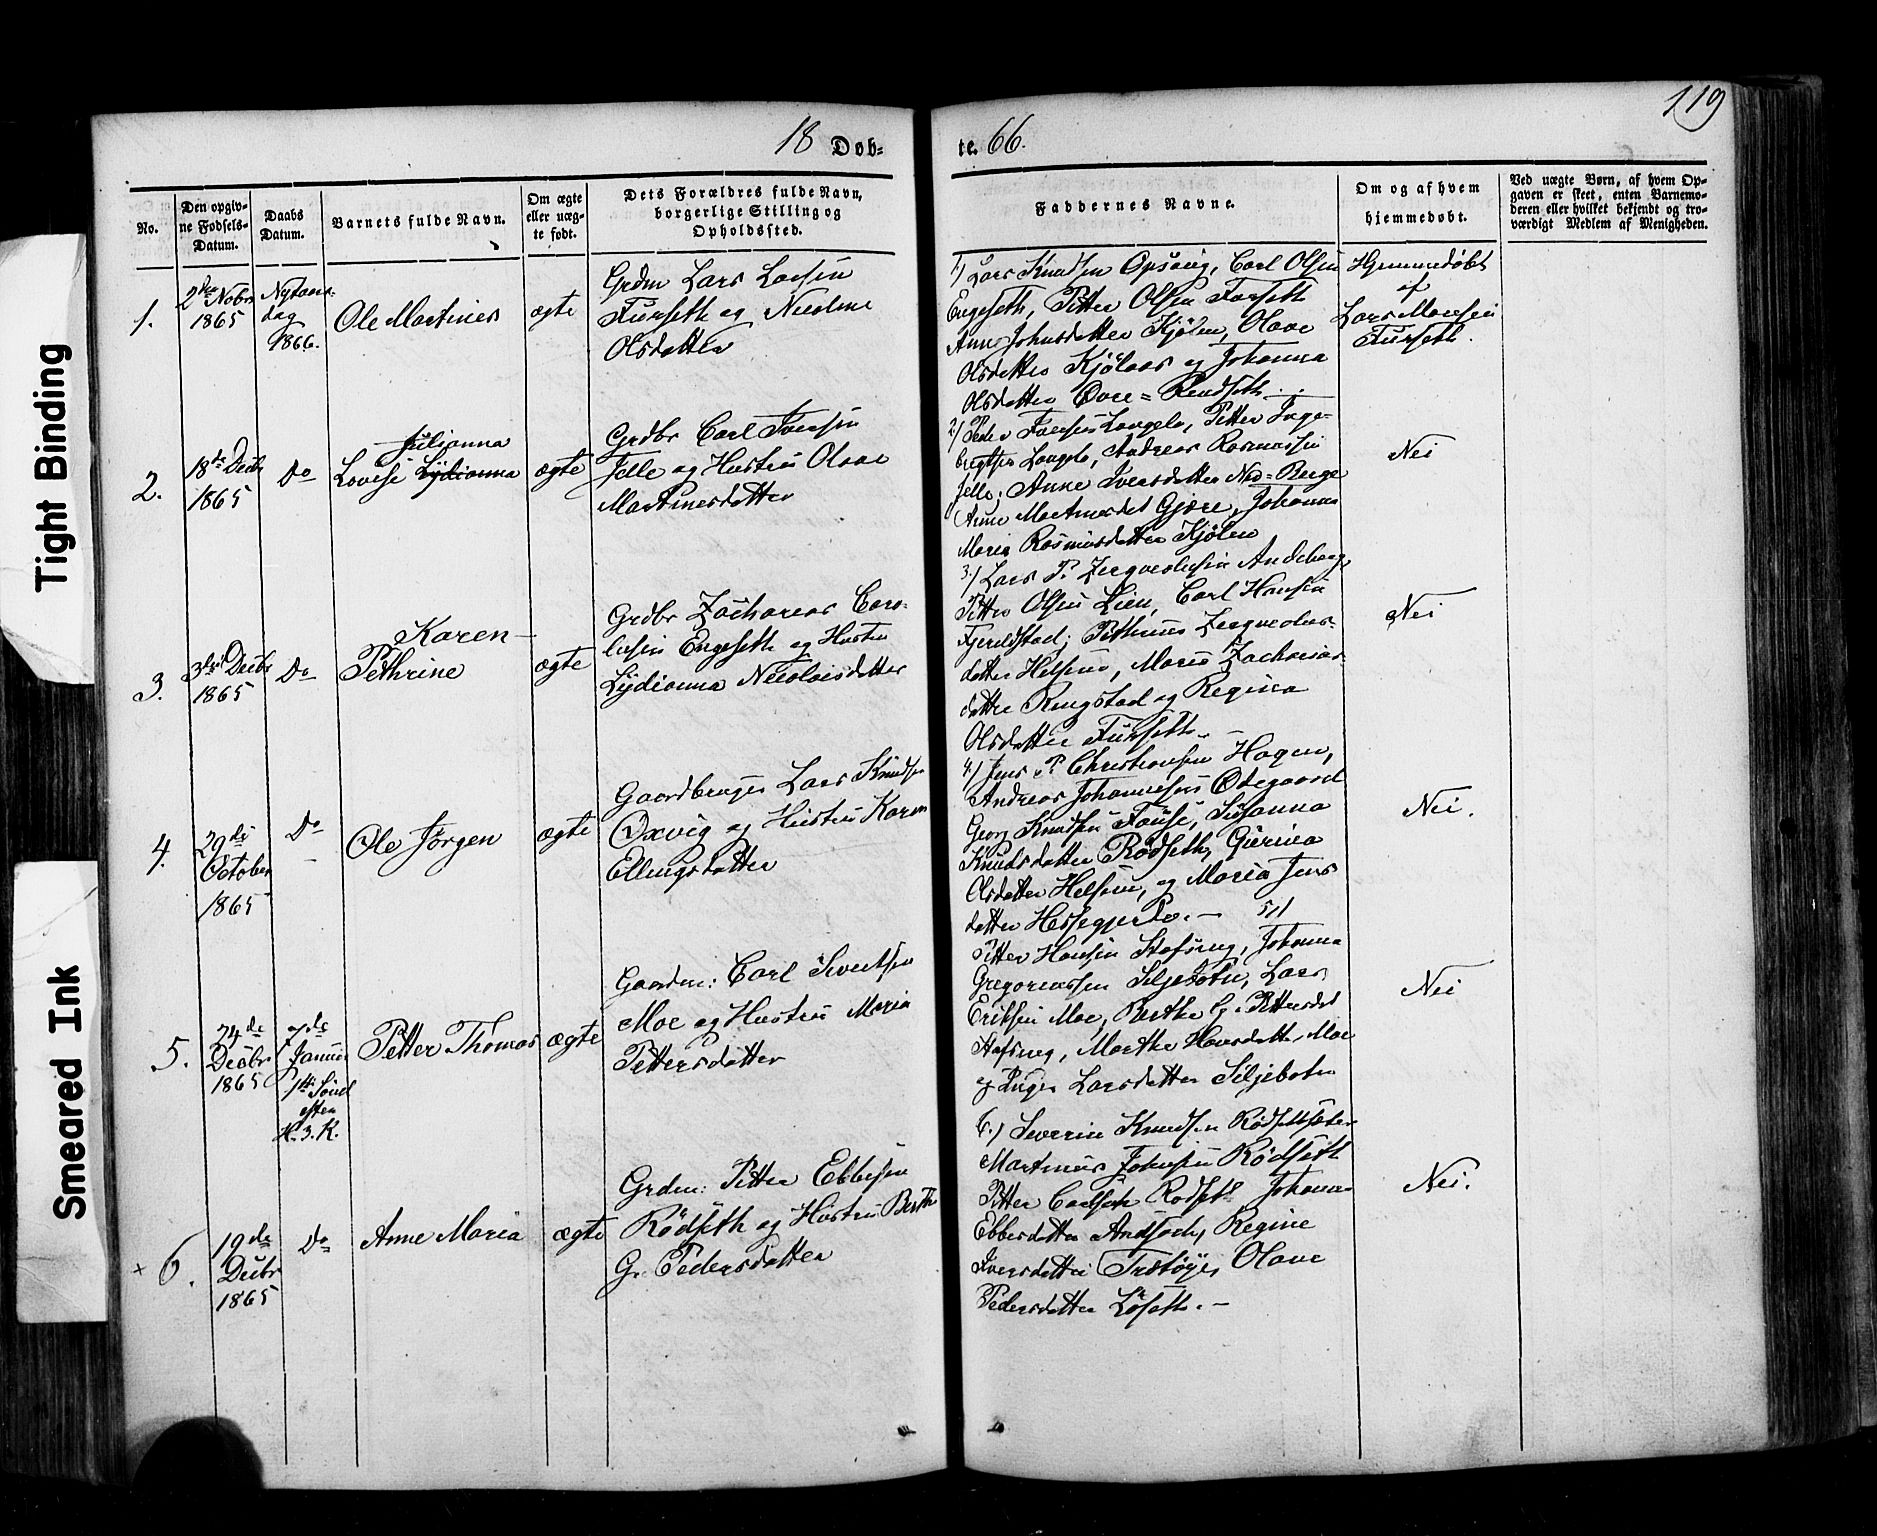 119
18 Døb=
te. 66.
No.
Den opgiv-
ne Fødsels-
Datum.
Daabs
Datum.
Barnets fulde Navn.
Om ægte
eller uæg-
te født.
Dets Forældres fulde Navn,
borgerlige Stilling og
Opholdssted.
Faddernes Navne.
Om og af hvem
hjemmedøbt.
Ved uægte Børn, af hvem Op-
gaven er skeet, enten Barnemo-
deren eller hvilket bekjendt og tro-
værdigt Medlem af Menigheden.
1.
2den Nobr
1865
Nytaars-
dag
1866.
Ole Martinus
ægte
Grdm Lars Larsen
Furseth og Nicoline
Olsdatter
1/ Lars Knudsen Opsvig, Carl Olsen
Engeseth, Petter Olsen Furseth
Anne Johnsdatter Kjølen, Olave
Olsdatter Kjølaas og Johanna
Olsdatter Øvre=Rendseth.
Hjemmedøbt
af
Lars Monsen
Furseth.
2.
18de Decbr
1865
Do
Julianna
Lovise Lydianna
ægte
Grdbr Carl Iversen
Jelle og Hustru Olave
Martinusdatter
2/ Peder Langelo, Petter Inge-
brigtsen Langelo, Andreas Rasmussen
Jelle, Anne Iversdatter Ned=Berge
Anne Martinusdat Gjære, Johanne
Maria Rasmusdatter Kjølen
Nei
3.
3die Decbr
1865
Do
Karen-
Pethrine
ægte
Grdbr Zacharias Caro-
lusen Engeseth og Hustru
Lydianna Nicolaisdatter
3/ Lars P. Andeberg,
Petter Olsen Lien, Carl Hansen
Fjeldstad;
datter Helsem, Maria Zacharias-
datter Ringstad og Regina
Olsdatter Furseth.-
Nei
4.
29de
October
1865
Do
-
Ole Jørgen
ægte
Gaardbruger Lars Knudsen
Oxvig og Hustru Karen
Ellingsdatter
4/ Jens P. Christiansen Hagen,
Andreas Johannesens Ødegaard
Georg Knudsen Fause, Susanna
Knudsdatter Rødseth, Gurina
Olsdatter Helsem, og Maria Jens
datter Hessegjerde. - 5//
Nei.
5.
24de
Decbr
1865
7de
Januar
1ste Sønd
efter
H. 3. K.
Petter Thomas
ægte
Gaardm: Carl Sivertsen
Moe og Hustru Maria
Pettersdatter
Petter Hansen Stafseng, Johanna
Gregoriussen Siljebøtn, Lars
Eriksen Moe, Berthe G. Pettersdat
Stafseng, Marthe Hansdatter Moe
og Inger Larsdatter Siljebotn
Nei
+ 6.
19de
Decbr
1865
Do
Anne Maria
ægte
Grdm: Petter Ebbesen
Rødseth og Hustru Berthe
G. Pedersdatter
6./ Severin Knudsen Rødsethsæter
Martinus Johnsen Rødseth
Petter Carlsen Rødseth Johanne
Ebbesdatter Regine
Iversdatter Olave
Pedersdatter Løseth.-
Nei.
Tight Binding
Smeared Ink